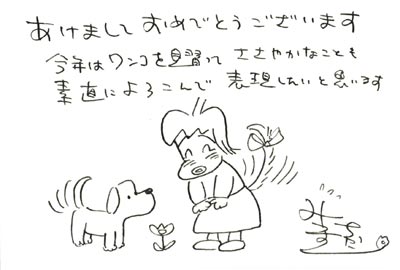 あけまして おめでとうございます
今年はワンコを見習って ささやかなことも
素直によろこんで 表現したいと思います